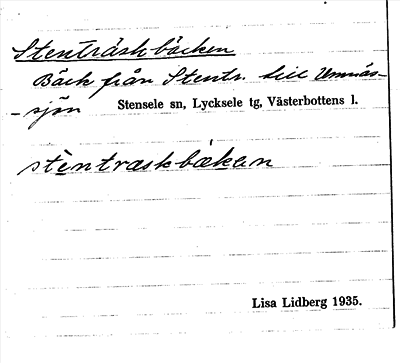 Stenträskbäcken
Bäck från Stentr. till Umnäs-
-sjön Stensele sn, Lycksele tg, Västerbottens l.
stèntraskbækan
Lisa Lidberg 1935.